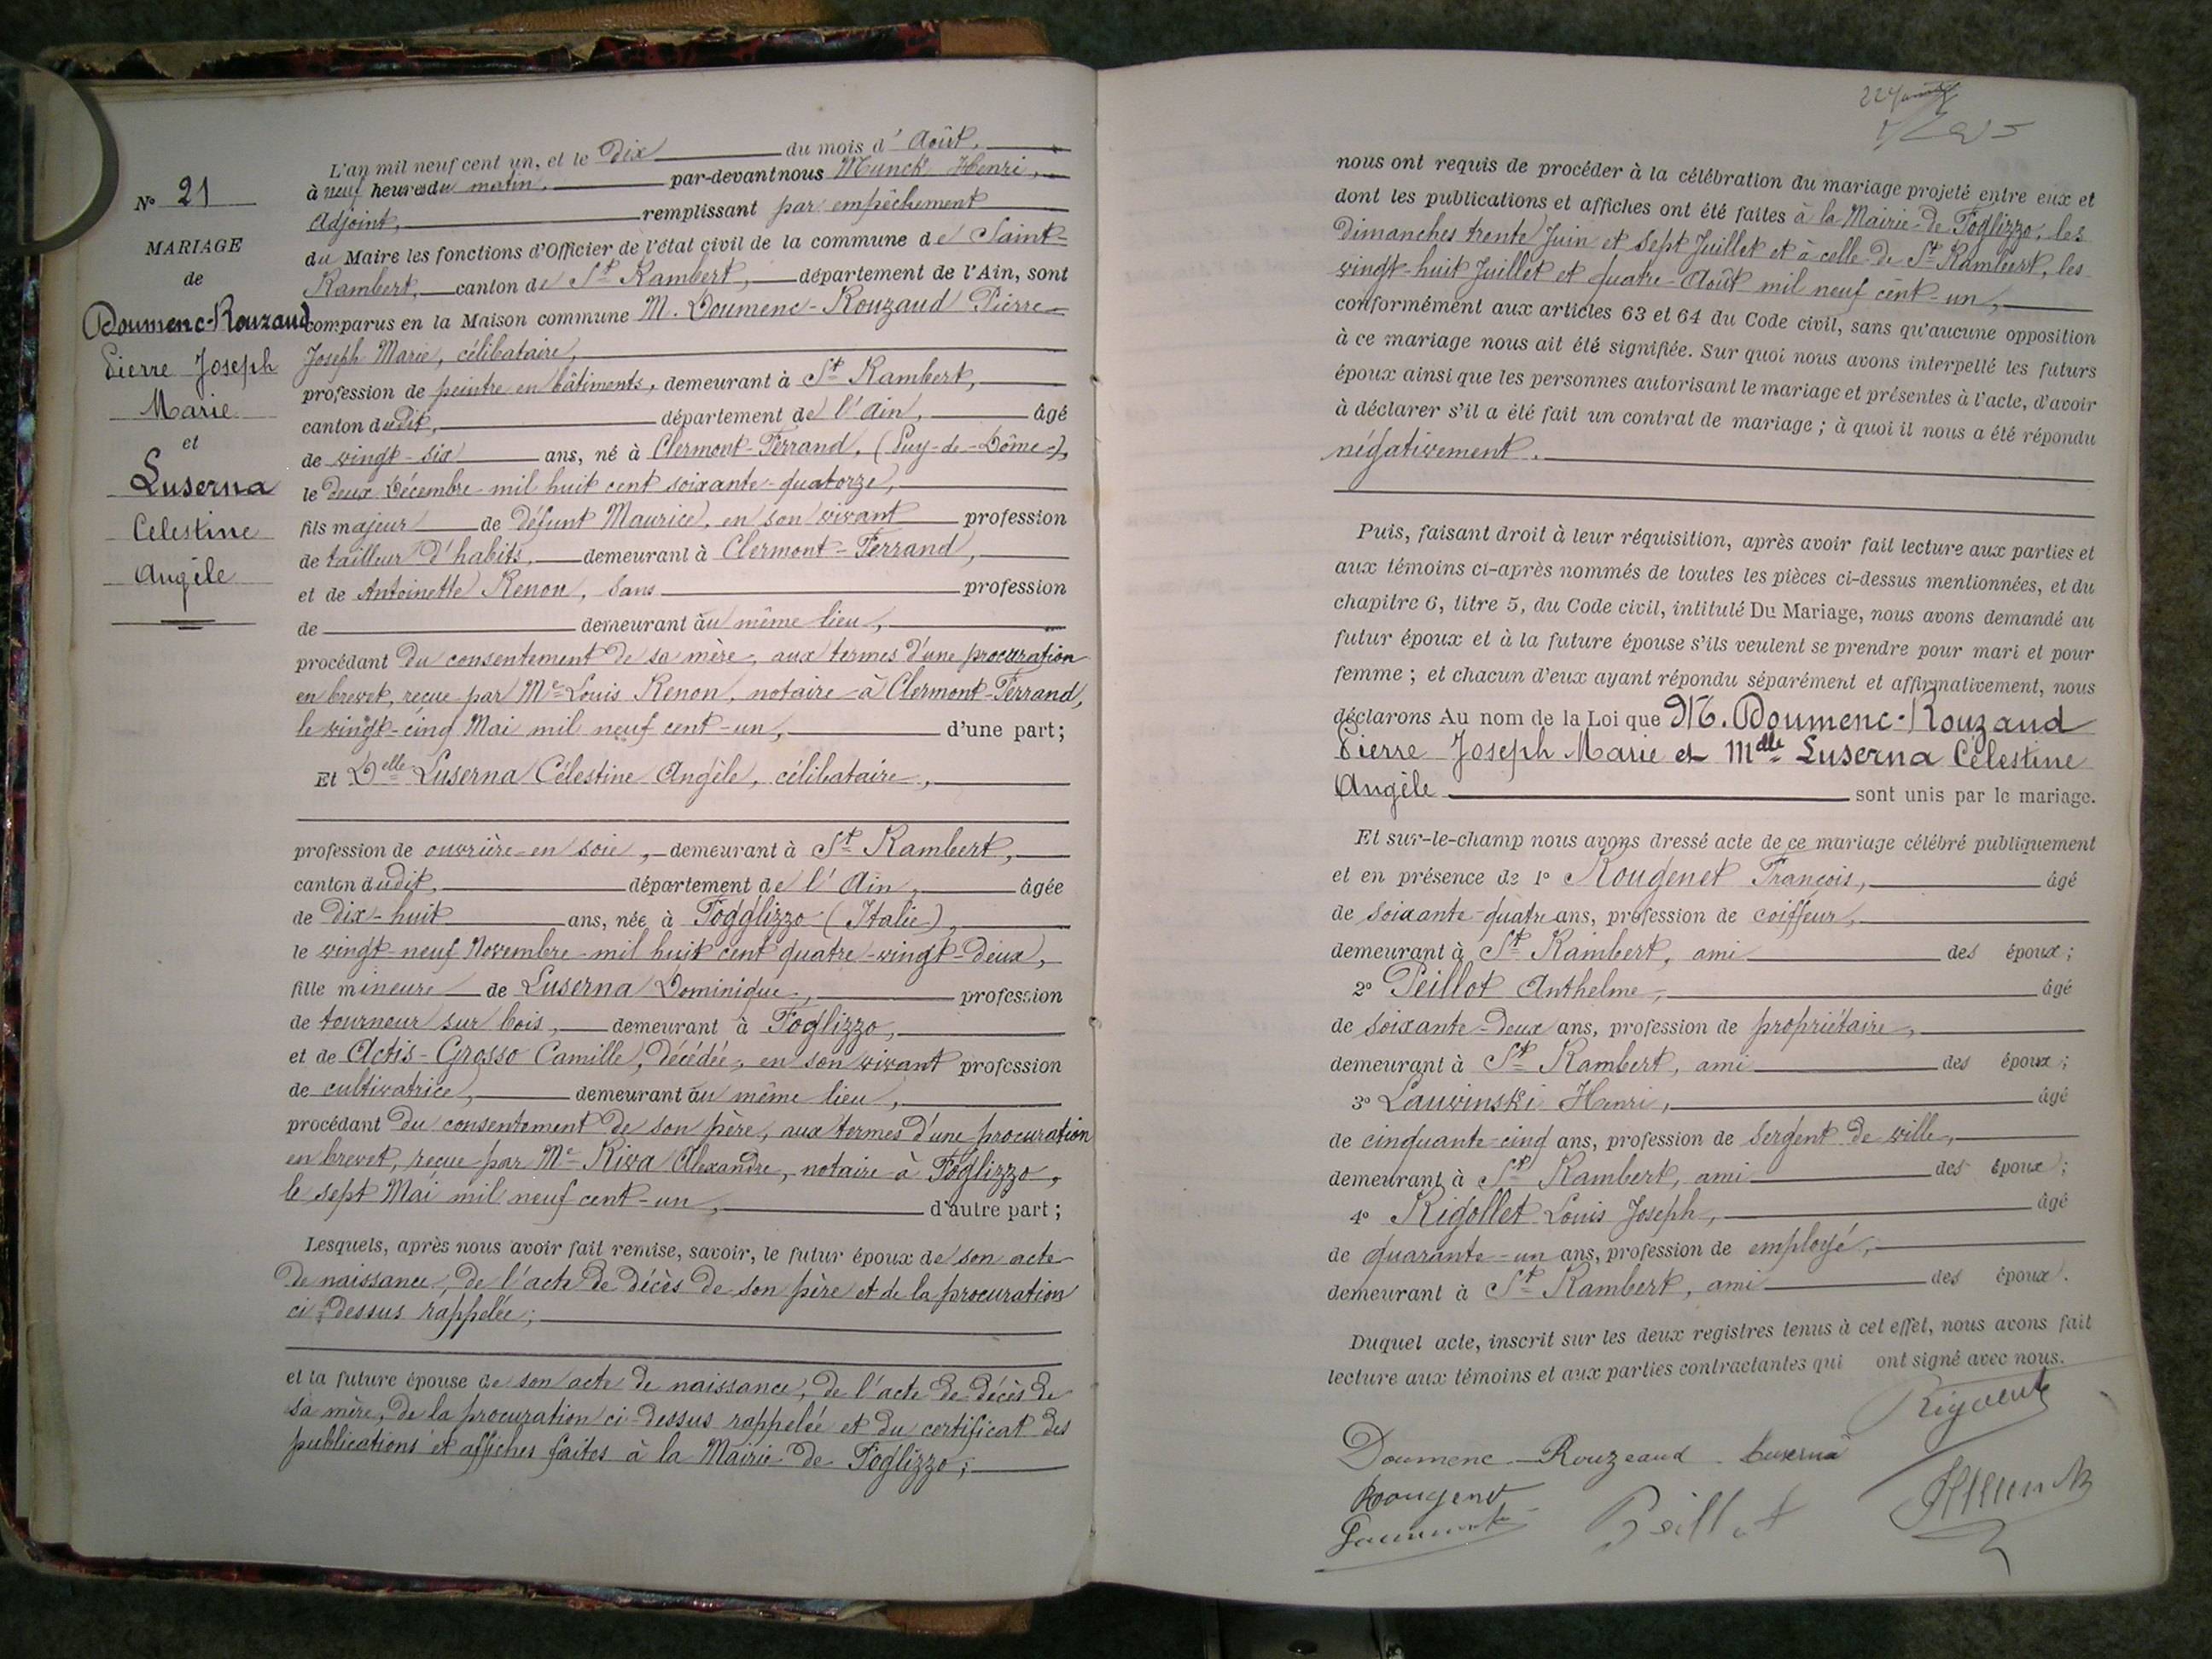 N° 21
MARIAGE
de
Doumenc-Rouzaud
Pierre Joseph
Marie
et
Luserna
Célestine
Angèle
L'an mil neuf cent un, et le dix du mois d'Août,
à neuf heures du matin, par-devant nous Munck Henri,
Adjoint, remplissant par empêchement
du Maire les fonctions d'Officier de l'état civil de la commune de Saint-
Rambert, canton de St Rambert, département de l'Ain, sont
comparus en la Maison commune M. Doumenc-Rouzaud Pierre
Joseph Marie, célibataire,
profession de peintre en bâtiments, demeurant à St Rambert,
canton dudit, département de l'Ain, âgé
de vingt-six ans, né à Clermont-Ferrand, (Puy-de-Dôme),
le deux Décembre mil huit cent soixante-quatorze,
fils majeur de défunt Maurice, en son vivant profession
de tailleur d'habits, demeurant à Clermont-Ferrand,
et de Antoinette Renon, sans profession
de demeurant au même lieu,
procédant du consentement de sa mère, aux termes d'une procuration
en brevet, reçue par Me Louis Renon, notaire à Clermont-Ferrand,
le vingt-cinq Mai mil neuf cent-un, d'une part;
Et Delle Luserna Célestine Angèle, célibataire,
profession de ouvrière en soie, demeurant à St Rambert,
canton dudit, département de l'Ain, âgée
de dix-huit ans, née à Fogglizzo (Italie),
le vingt-neuf Novembre mil huit cent quatre-vingt-deux,
fille mineure de Luserna Dominique, profession
de tourneur sur bois, demeurant à Foglizzo,
et de Actis-Grosso Camille, décédée, en son vivant profession
de cultivatrice, demeurant au même lieu,
procédant du consentement de son père, aux termes d'une procuration
en brevet, reçue par Me Riva Alexandre, notaire à Foglizzo,
le sept Mai mil neuf cent-un, d'autre part;
Lesquels, après nous avoir fait remise, savoir, le futur époux de son acte
de naissance, de l'acte de décès de son père et de la procuration
ci-dessus rappelée;
et la future épouse de son acte de naissance, de l'acte de décès de
sa mère, de la procuration ci-dessus rappelée et du certificat des
publications et affiches faites à la Mairie de Foglizzo;
nous ont requis de procéder à la célébration du mariage projeté entre eux et
dont les publications et affiches ont été faites à la Mairie de Foglizzo, les
dimanches trente Juin et sept Juillet et à celle de St Rambert, les
vingt-huit Juillet et quatre Août mil neuf cent-un,
conformément aux articles 63 et 64 du Code civil, sans qu'aucune opposition
à ce mariage nous ait été signifiée. Sur quoi nous avons interpellé les futurs
époux ainsi que les personnes autorisant le mariage et présentes à l'acte, d'avoir
à déclarer s'il a été fait un contrat de mariage; à quoi il nous a été répondu
négativement.
Puis, faisant droit à leur réquisition, après avoir fait lecture aux parties et
aux témoins ci-après nommés de toutes les pièces ci-dessus mentionnées, et du
chapitre 6, titre 5, du Code civil, intitulé Du Mariage, nous avons demandé au
futur époux et à la future épouse s'ils veulent se prendre pour mari et pour
femme; et chacun d'eux ayant répondu séparément et affirmativement, nous
déclarons Au nom de la Loi que M. Doumenc-Rouzaud
Pierre Joseph Marie et Mdlle Luserna Célestine
Angèle sont unis par le mariage.
Et sur-le-champ nous avons dressé acte de ce mariage célébré publiquement
et en présence de 1° Rougenet François, âgé
de soixante-quatre ans, profession de coiffeur,
demeurant à St Rambert, ami des époux;
2° Peillot Anthelme, âgé
de soixante-deux ans, profession de propriétaire,
demeurant à St Rambert, ami des époux;
3° Lauwinski Henri, âgé
de cinquante-cinq ans, profession de sergent de ville,
demeurant à St Rambert, ami des époux;
4° Rigollet Louis Joseph, âgé
de quarante-un ans, profession de employé,
demeurant à St Rambert, ami des époux.
Duquel acte, inscrit sur les deux registres tenus à cet effet, nous avons fait
lecture aux témoins et aux parties contractantes qui ont signé avec nous.
Doumenc-Rouzeaud Luserna
Rougenet
Peillot
HMunck